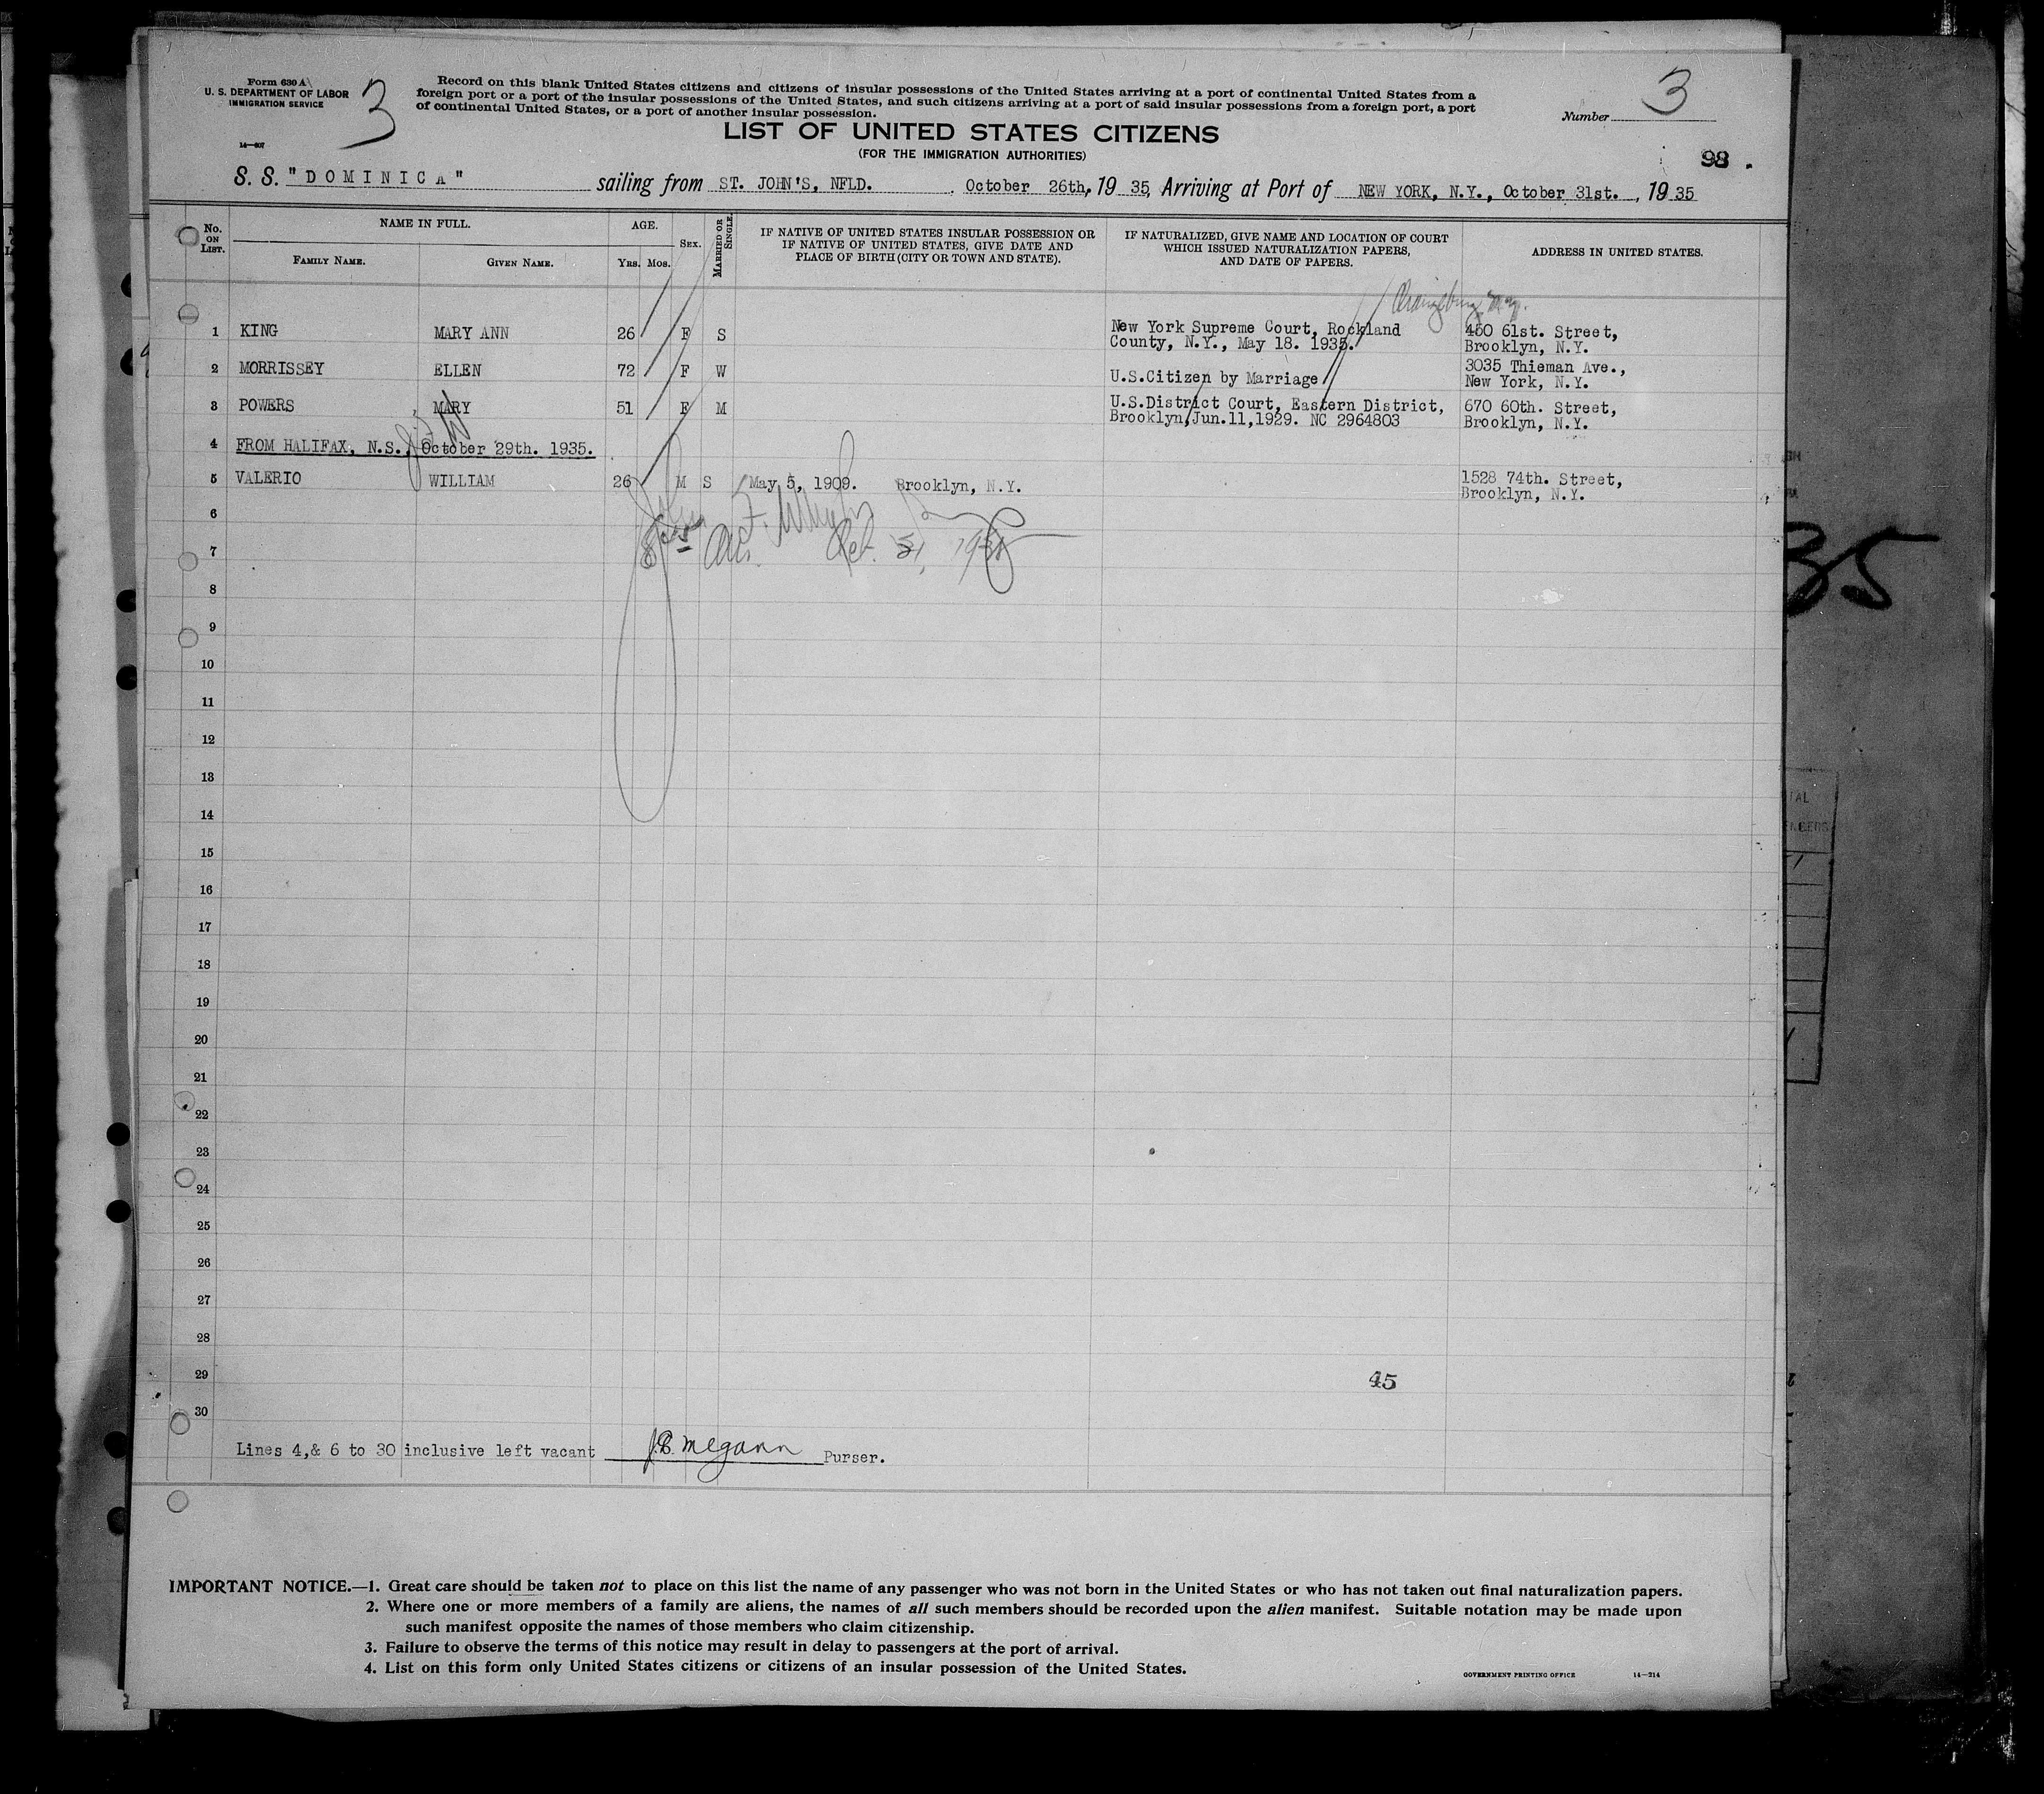 Form 630 A
U. S. DEPARTMENT OF LABOR
IMMIGRATION SERVICE
14—807
3
Record on this blank United States citizens and citizens of insular possessions of the United States arriving at a port of continental United States from a
foreign port or a port of the insular possessions of the United States, and such citizens arriving at a port of said insular possessions from a foreign port, a port
of continental United States, or a port of another insular possession.
Number 3
LIST OF UNITED STATES CITIZENS
(FOR THE IMMIGRATION AUTHORITIES)
98
S. S. "DOMINICA" sailing from ST. JOHN'S, NFLD. , October 26th, 19 35, Arriving at Port of NEW YORK, N.Y., October 31st. , 19 35
No. ON LIST.
NAME IN FULL.
FAMILY NAME. GIVEN NAME.
AGE.
YRS. MOS.
SEX.
MARRIED OR SINGLE
IF NATIVE OF UNITED STATES INSULAR POSSESSION OR
IF NATIVE OF UNITED STATES, GIVE DATE AND
PLACE OF BIRTH (CITY OR TOWN AND STATE).
IF NATURALIZED, GIVE NAME AND LOCATION OF COURT
WHICH ISSUED NATURALIZATION PAPERS,
AND DATE OF PAPERS.
ADDRESS IN UNITED STATES.
Orangeburg N.Y.
1 KING MARY ANN 26 F S New York Supreme Court, Rockland 450 61st. Street,
County, N.Y., May 18. 1935. Brooklyn, N.Y.
2 MORRISSEY ELLEN 72 F W U.S.Citizen by Marriage 3035 Thieman Ave.,
New York, N.Y.
3 POWERS MARY 51 F M U.S.District Court, Eastern District, 670 60th. Street,
Brooklyn,Jun.11,1929. NC 2964803 Brooklyn, N.Y.
4 FROM HALIFAX, N.S., October 29th. 1935.
5 VALERIO WILLIAM 26 M S May 5, 1909. Brooklyn, N.Y. 1528 74th. Street,
Brooklyn, N.Y.
6
7 Oct. 31, 1935
8
9
10
11
12
13
14
15
16
17
18
19
20
21
22
23
24
25
26
27
28
29 45
30
Lines 4,& 6 to 30 inclusive left vacant J.B. Megann Purser.
IMPORTANT NOTICE.—1. Great care should be taken not to place on this list the name of any passenger who was not born in the United States or who has not taken out final naturalization papers.
2. Where one or more members of a family are aliens, the names of all such members should be recorded upon the alien manifest. Suitable notation may be made upon
such manifest opposite the names of those members who claim citizenship.
3. Failure to observe the terms of this notice may result in delay to passengers at the port of arrival.
4. List on this form only United States citizens or citizens of an insular possession of the United States.
GOVERNMENT PRINTING OFFICE 14—214
35